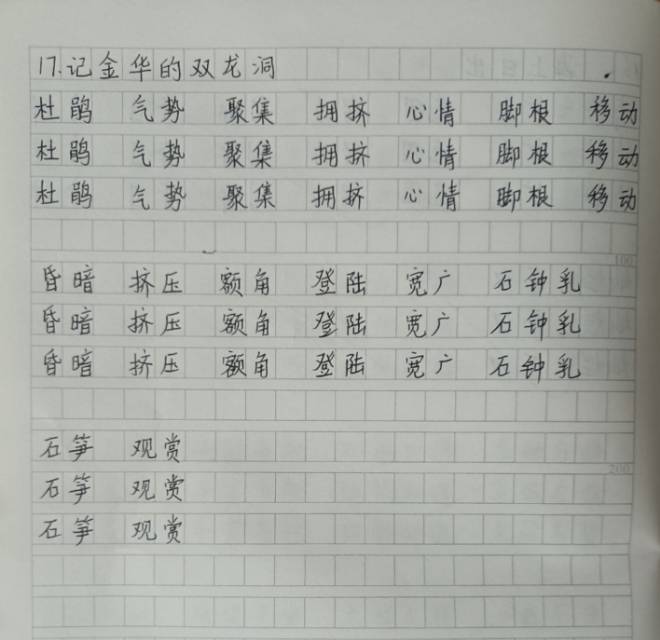 17.记金华的双龙洞
杜鹃 气势 聚集 拥挤 心情 脚根 移动
杜鹃 气势 聚集 拥挤 心情 脚根 移动
杜鹃 气势 聚集 拥挤 心情 脚根 移动
100
昏暗 挤压 额角 登陆 宽广 石钟乳
昏暗 挤压 额角 登陆 宽广 石钟乳
昏暗 挤压 额角 登陆 宽广 石钟乳
石笋 观赏
200
石笋 观赏
石笋 观赏